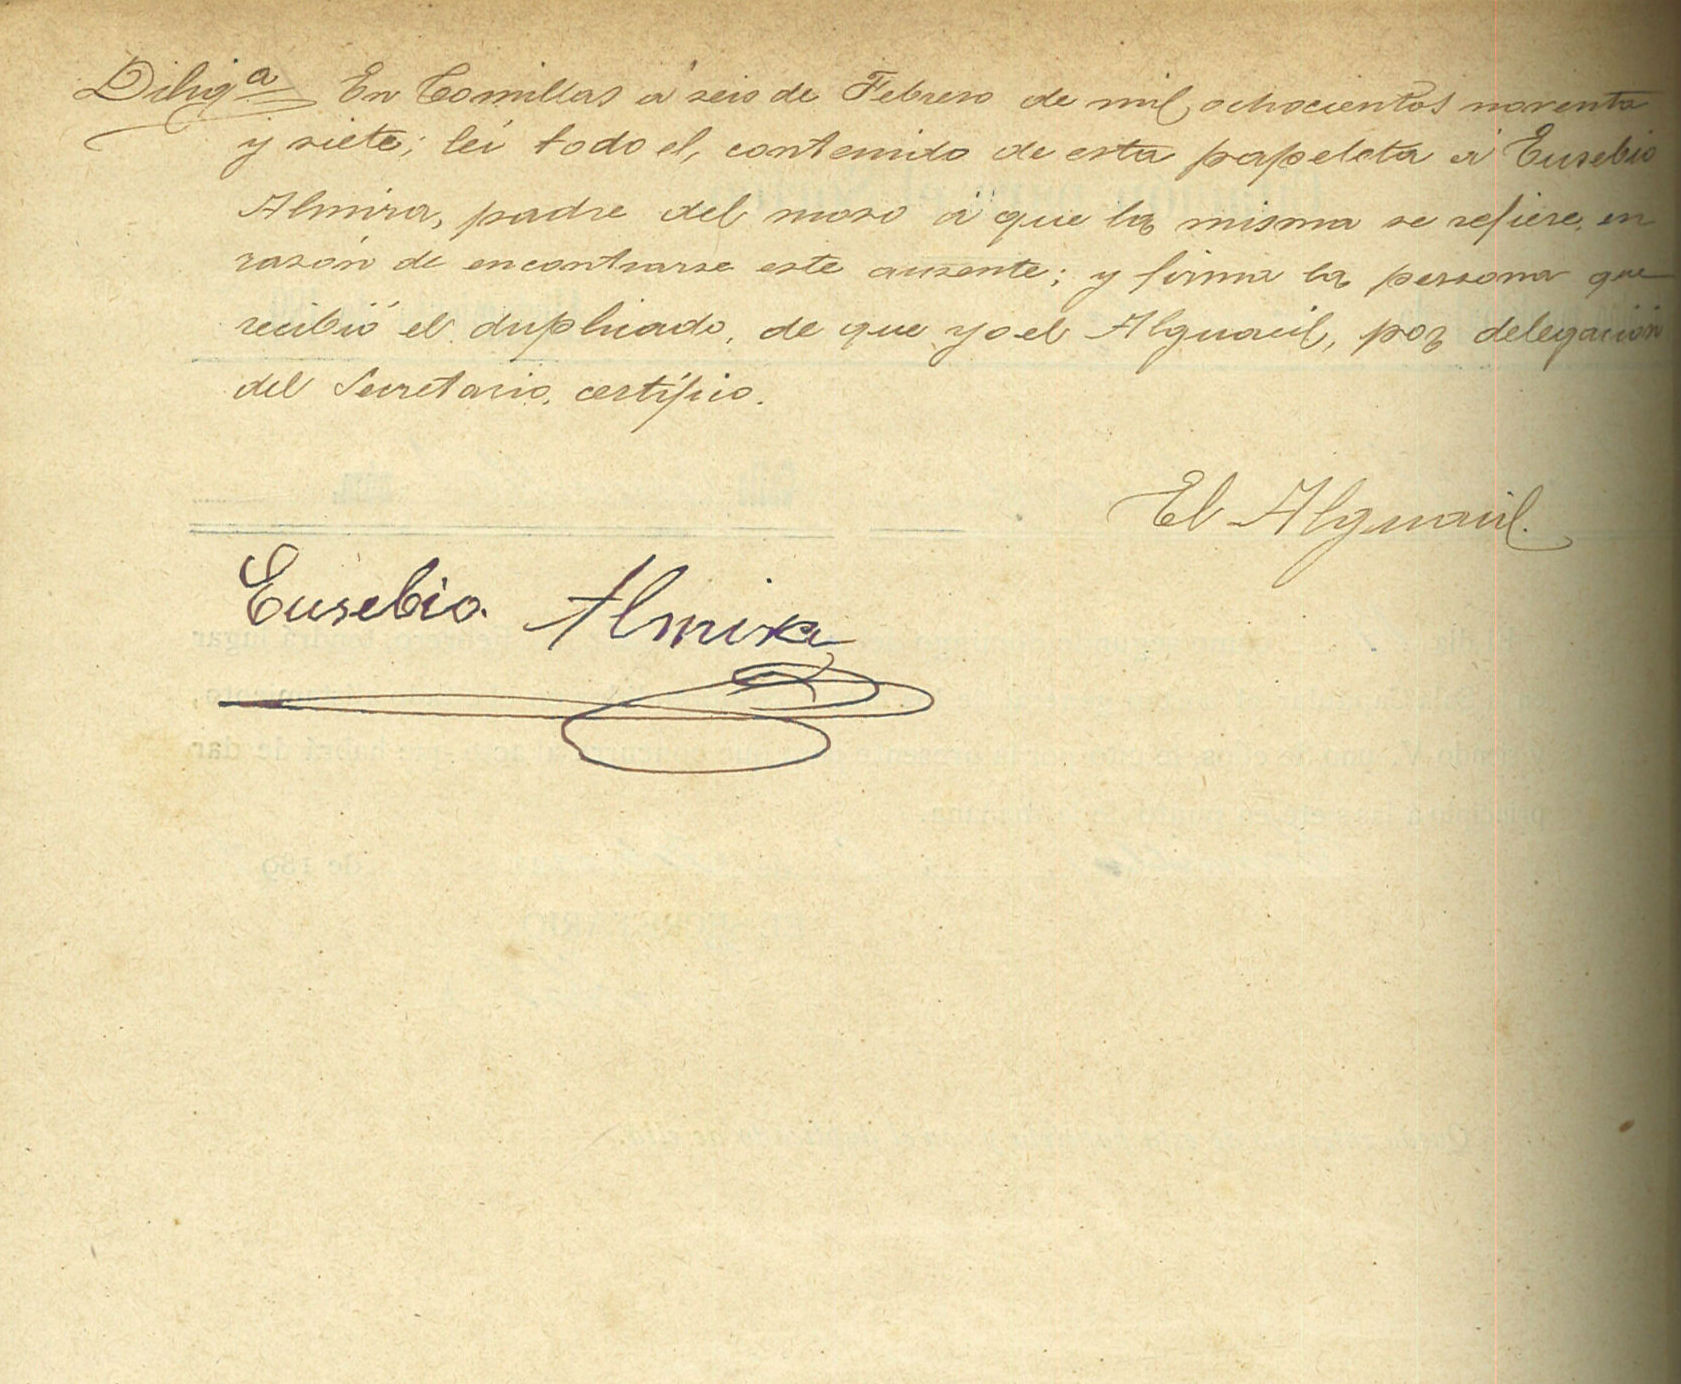 Diligª En Comillas á seis de Febrero de mil ochocientos noventa
y siete; leí todo el contenido de esta papeleta á Eusebio
Almira, padre del moso á que la misma se refiere, en
rasón de encontrarse este ausente; y firma la persona que
recibió el duplicado, de que yo el Alguacil, por delegación
del Secretario, certífico.
El Alguacil.
Eusebio Almira